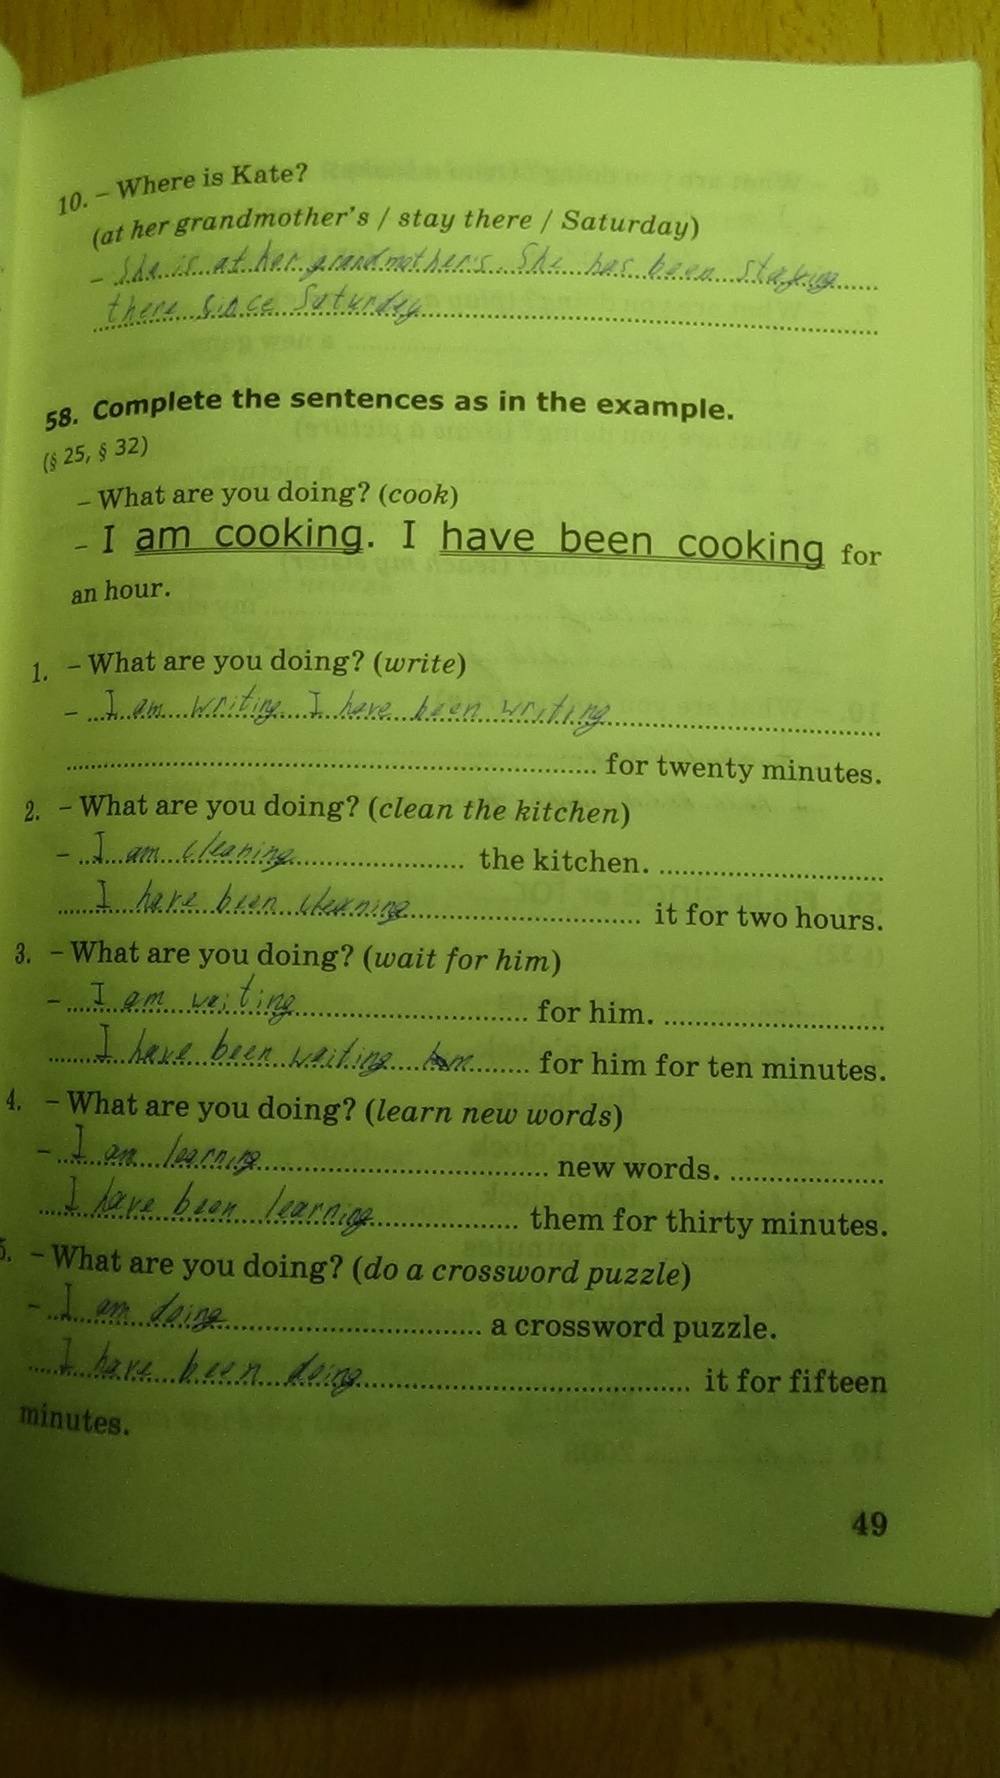 10. – Where is Kate?
(at her grandmother's / stay there / Saturday)
– She is at her grandmother's. She has been staying
there since Saturday
58. Complete the sentences as in the example.
(§ 25, § 32)
– What are you doing? (cook)
– I am cooking. I have been cooking for
an hour.
1. – What are you doing? (write)
– I am writing I have been writing
for twenty minutes.
2. – What are you doing? (clean the kitchen)
– I am cleaning the kitchen.
I have been cleaning it for two hours.
3. – What are you doing? (wait for him)
– I am waiting for him.
I have been waiting for him for ten minutes.
4. – What are you doing? (learn new words)
– I am learning new words.
I have been learning them for thirty minutes.
5. – What are you doing? (do a crossword puzzle)
– I am doing a crossword puzzle.
I have been doing it for fifteen
minutes.
49